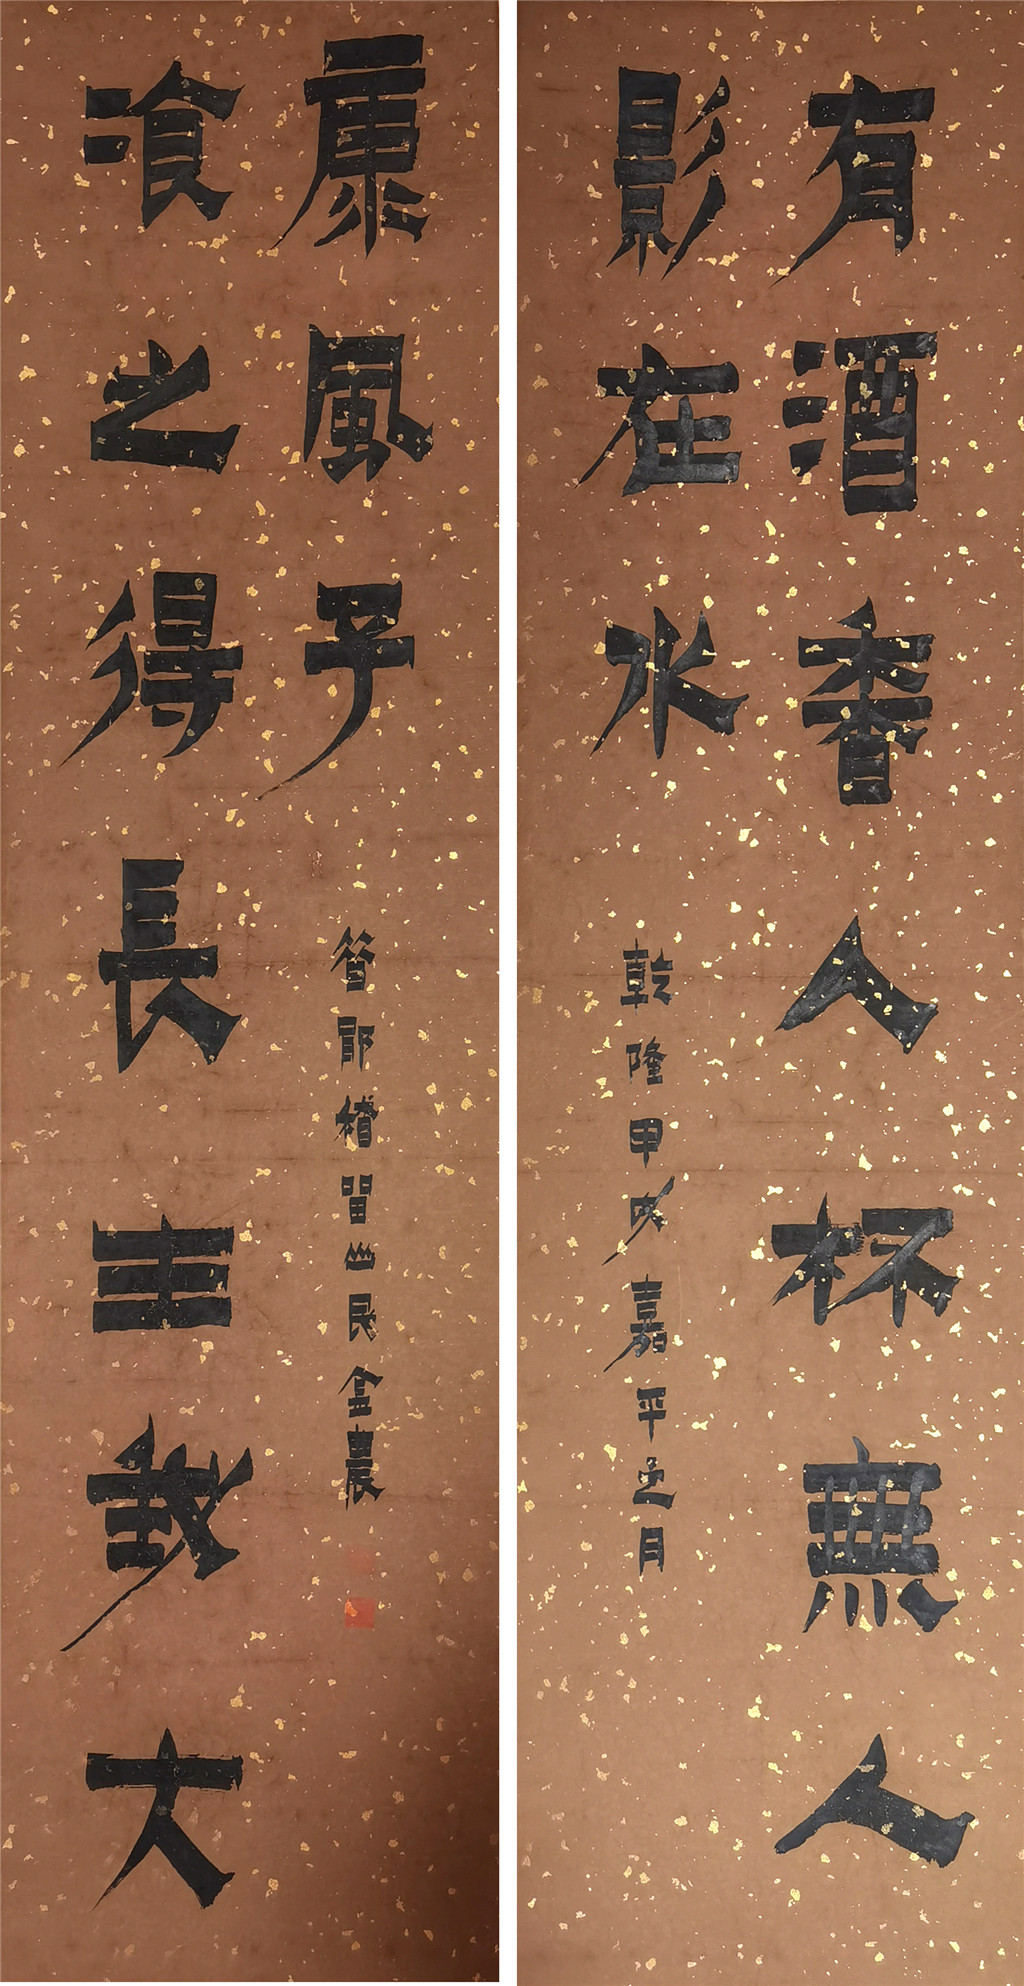 有酒香人杯無人
影在水
乾隆甲戌嘉平之月
飡之得長生我大
康風子
昔邪稽留山民金農